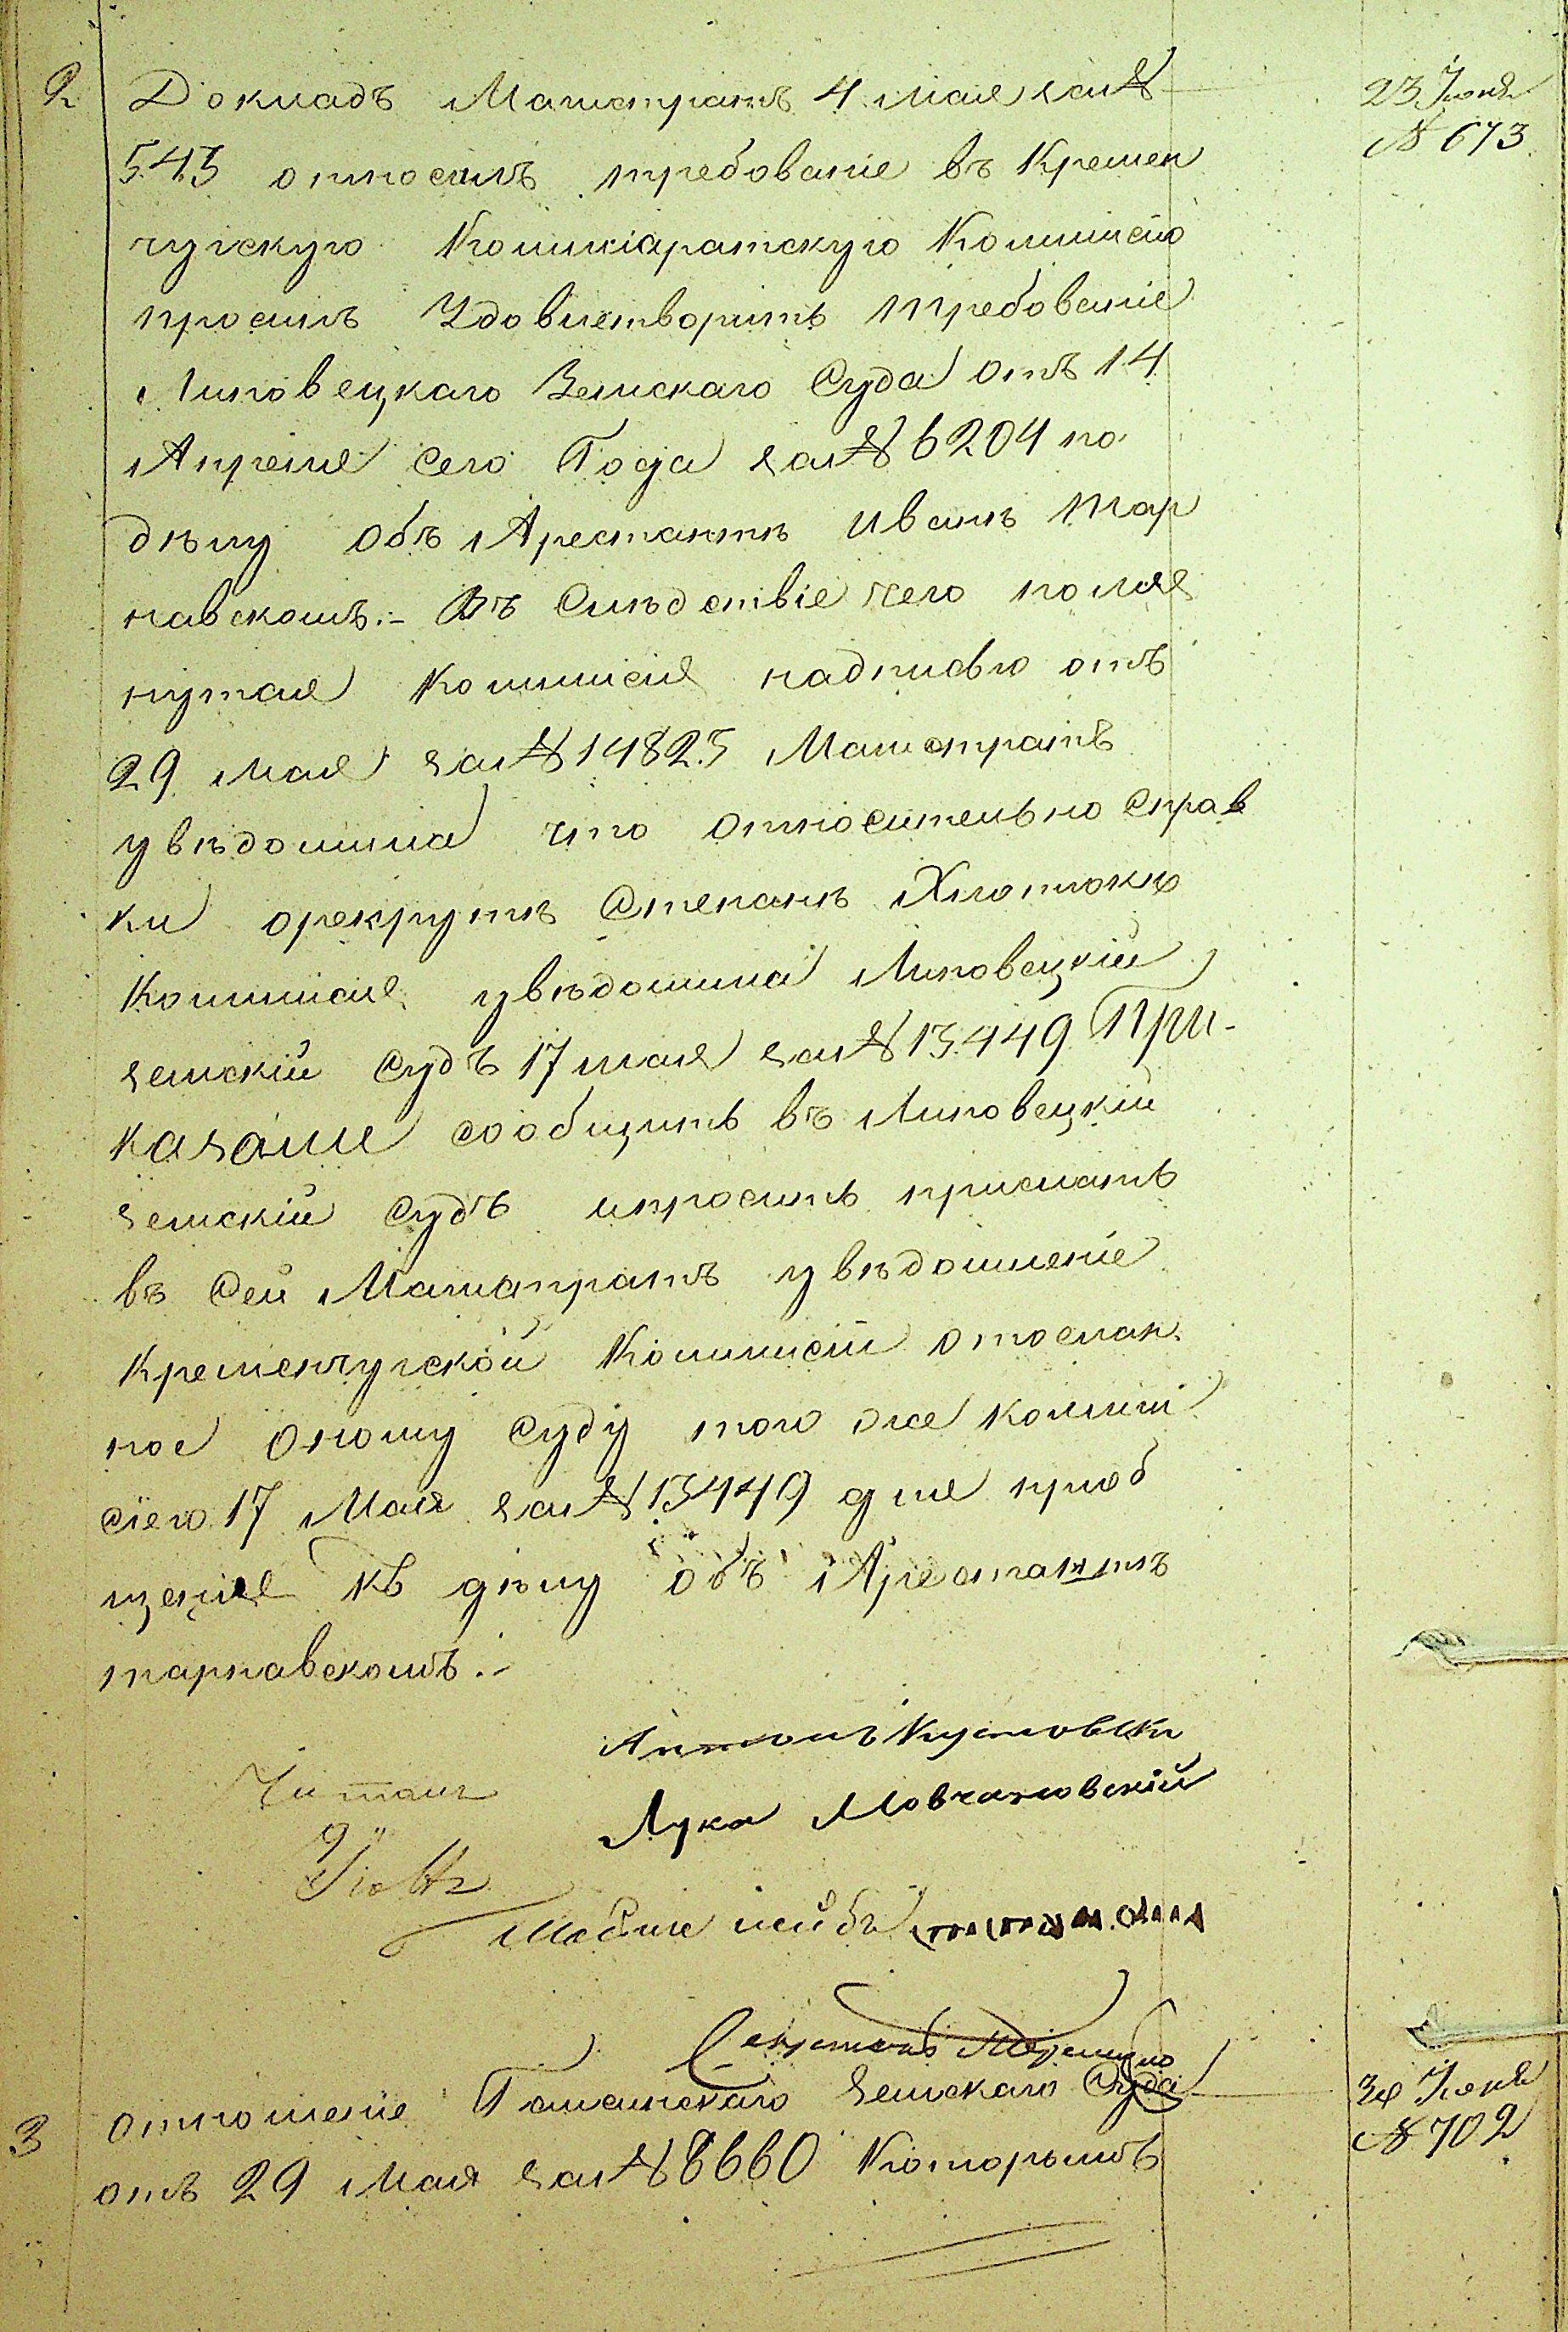 2 Докладъ Магистратъ 4 Мая за №
23 Іюня
№ 673
543 относилъ требованіе въ Кремен
чугскую Коммисіаратскую Коммисію
просилъ Удовлетворить требованіе
Липовецкаго Земскаго Суда отъ 14
Апреля сего Года за № 6204 по
дѣлу объ Арестантѣ Иванѣ Тар
навскомъ.- Въ Слѣдствіе чего помя
нутая Коммисія надписью отъ
29 Мая за № 14825 Магистратъ
увѣдомила что относительно справ
ки орекрутѣ Степанѣ
Коммисія увѣдомила Липовецкій
земскій Судъ 17 мая за № 13449 При-
казали сообщить въ Липовецкій
земскій судъ ипросить прислать
въ Сей Магистратъ увѣдомленіе
Кременчугской Коммисіи отослан
ное оному Суду тою же коммі
сіею 17 Мая за № 13449 для пріоб
щенія къ дѣлу объ Арестантѣ
тарнавскомъ.-
Антонъ
Читалъ
Лука Мовчановскій
3 отношеніе Земскаго Суда
Іюня
№ 702
отъ 29 Мая за № 8660 Которымъ